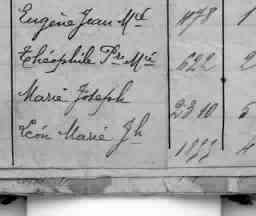 Eugène Jean Mie 1178 1
Théophile Pre Mie 622 2
Marie Joseph 2310 5
Léon Marie Jh 4